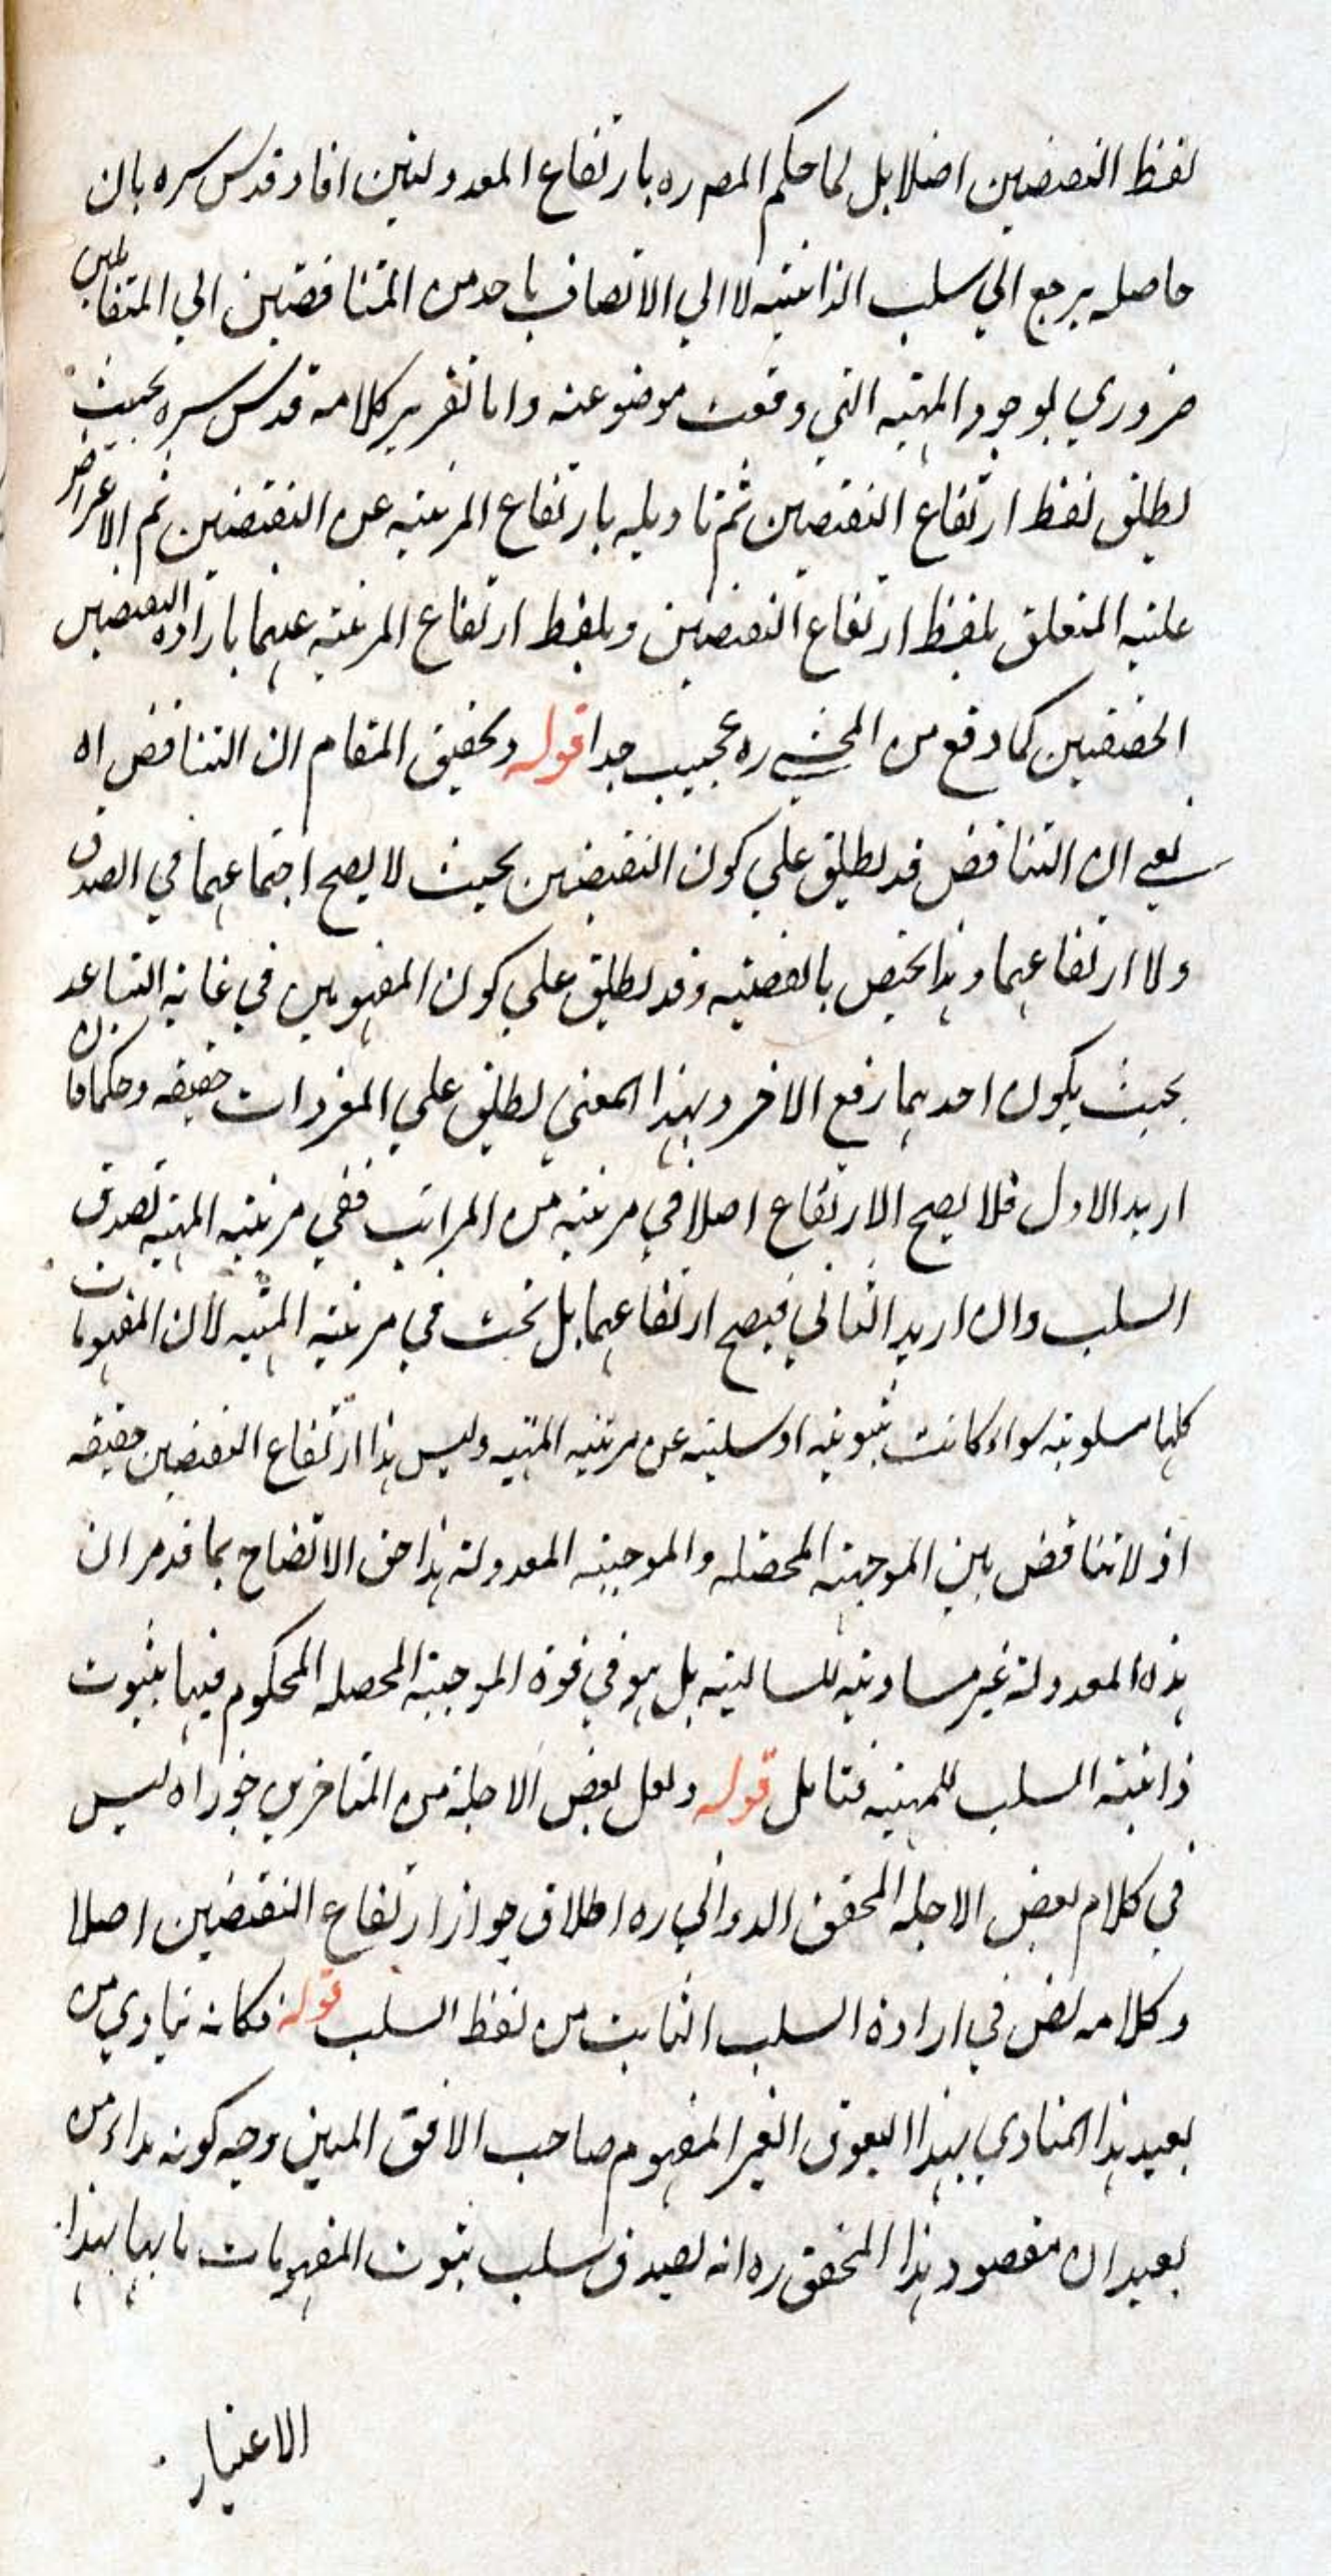 لفظ النقيضين اصلا بل لما حكم المص ره بارتفاع المعدولتين افاد قدس سره بان
حاصله يرجع الي سلب الذاتية لا الي الاتصاف باحد من المتناقضين الي المتقابلين
ضروري لوجود المهية التي وقعت موضوعة واما تقرير كلامه قدس سره بحيث
يطلق لفظ ارتفاع النقيضين ثم تاويله بارتفاع المرتبة عن النقيضين ثم الاعتراض
عليه المتعلق بلفظ ارتفاع النقيضين وبلفظ ارتفاع المرتبة عنهما بارادة النقيضين
الحقيقين كما وقع من المحشي ره عجيب جدا قوله وتحقيق المقام ان التناقض اه
يعني ان التناقض قد يطلق علي كون النقيضين بحيث لا يصح اجتماعهما في الصدق
ولا ارتفاعهما وهذا يختص بالقضية وقد يطلق علي كون المفهومين في غاية التباعد
بحيث يكون احدهما رفع الاخر وبهذا المعني يطلق علي المفردات حقيقة وحكما فان
اريد الاول فلا يصح الارتفاع اصلا في مرتبة من المراتب ففي مرتبة المهية تصدق
السلب وان اريد الثاني فيصح ارتفاعهما بل تحت في مرتبة المهية لان المفهومات
كلها مسلوبة سواء كانت ثبوتية او سلبية عن مرتبة المهية وليس هذا ارتفاع النقيضين حقيقة
اذ لا تناقض بين الموجبة المحصلة والموجبة المعدولة هذا حق الاتضاح بما قد مر ان
هذه المعدولة غير مساوية للسالبة بل هو في قوة الموجبة المحصلة المحكوم فيها بثبوت
ذاتية السلب للمهية فتامل قوله ولعل بعض الاجلة من المتاخرين جوز اه ليس
في كلام بعض الاجلة المحقق الدواني ره اطلاق جواز ارتفاع النقيضين اصلا
وكلامه نص في ارادة السلب الثابت من لفظ السلب قوله فكانه ينادي من
بعيد هذا المنادي بهذا اليعوق الغير المفهوم صاحب الافق المبين وجه كونه نداء من
بعيد ان مقصود هذا المحقق ره انه يصدق سلب ثبوت المفهومات بابها بهذا
الاعتبار